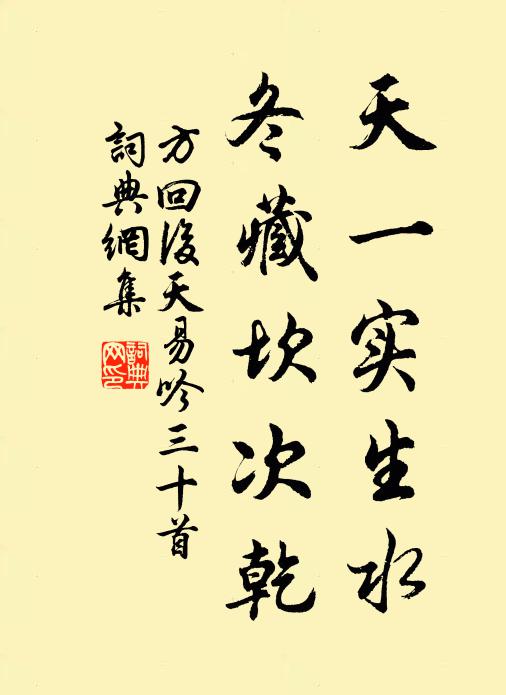 天一实生水
冬藏坎次乾
方回後天易吟三十首
詞典網集
詞典网印